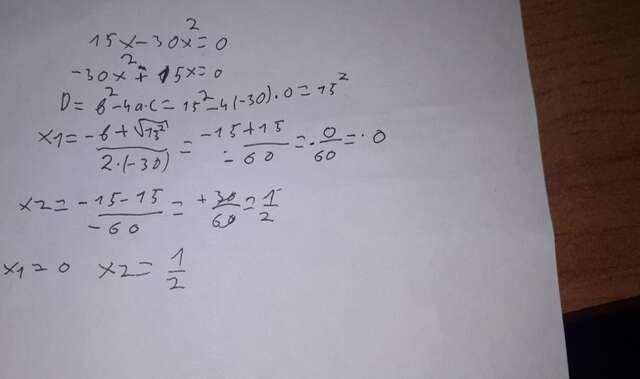 15x-30x²=0
-30x²+15x=0
D=b²-4a·c=15²-4(-30)·0=15²
x1=-b+√15²/2·(-30)=-15+15/-60=-0/60=0
x2=-15-15/-60=+30/60=1/2
x1=0 x2=1/2